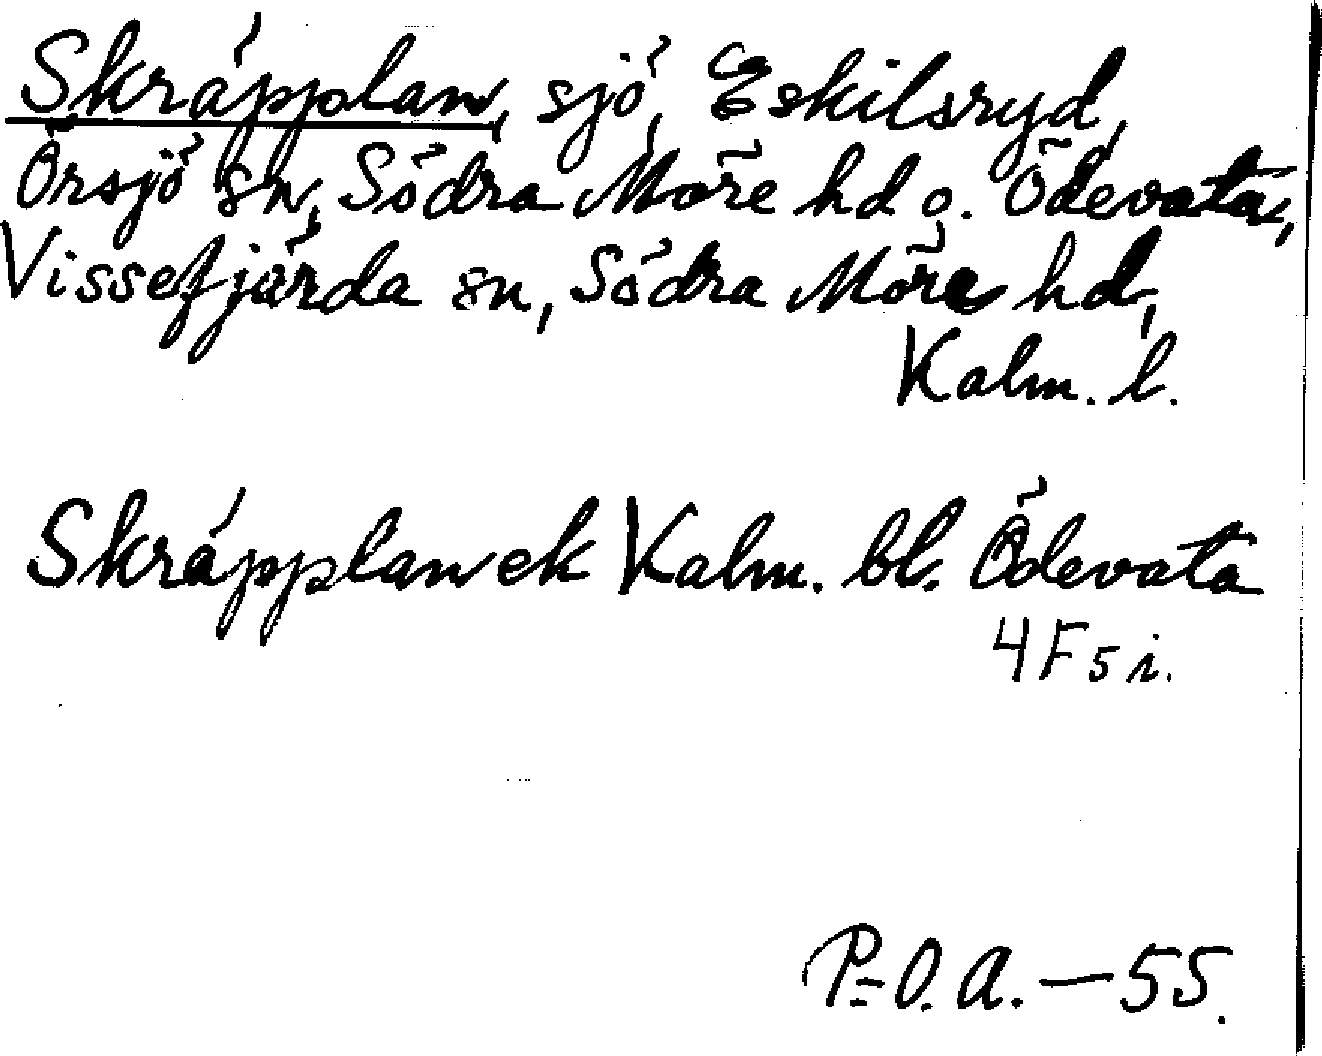 Skräpplan, sjö, Eskilsryd,
Örsjö sn, Södra Möre hd o. Ödevata,
Vissefjärda sn, Södra Möre hd,
Kalm. l.
Skräpplan ek Kalm. bl. Ödevata
4F5i.
P-O.A. — 55.